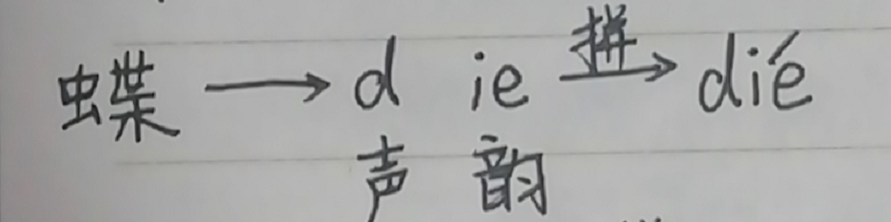 拼
蝶 → d ie → dié
声 韵